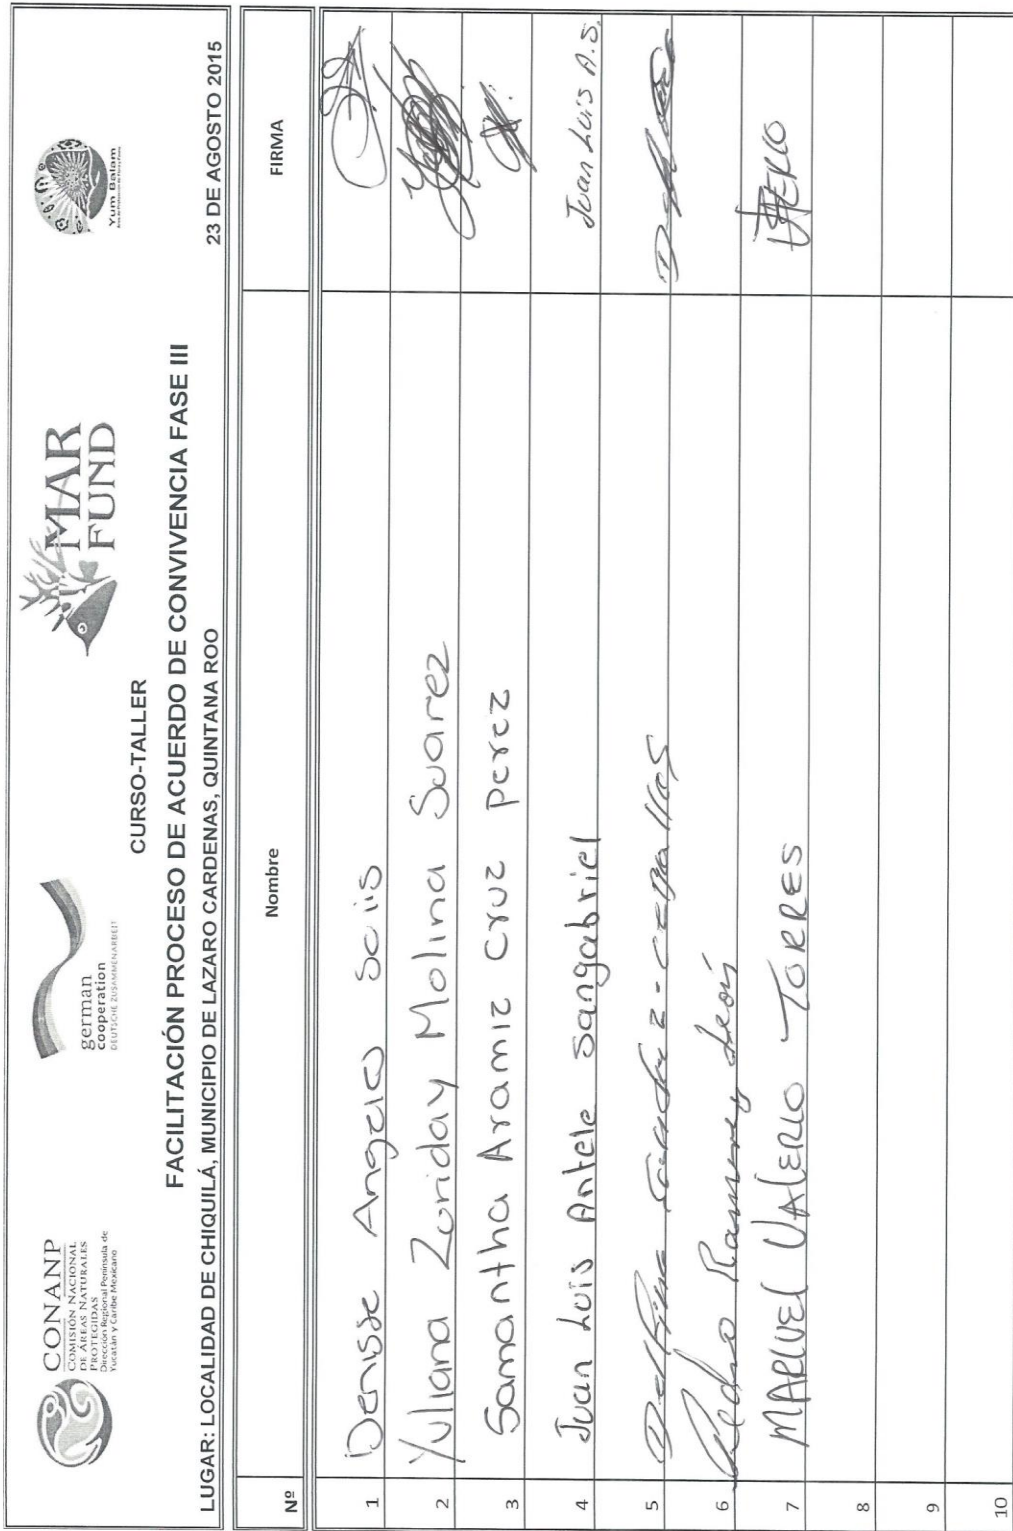 CONANP
COMISIÓN NACIONAL
DE ÁREAS NATURALES
PROTEGIDAS
Dirección Regional Península de
Yucatán y Caribe Mexicano
german
cooperation
DEUTSCHE ZUSAMMENARBEIT
MAR
FUND
Yum Balam
CURSO-TALLER
FACILITACIÓN PROCESO DE ACUERDO DE CONVIVENCIA FASE III
LUGAR: LOCALIDAD DE CHIQUILÁ, MUNICIPIO DE LAZARO CARDENAS, QUINTANA ROO 23 DE AGOSTO 2015
Nº Nombre FIRMA
1 Denisse Angelo
2 Yuliana Zoriday Molina Suarez
3 Samantha Aramiz Cruz perez
4 Juan Luis Antele sangabriel Juan Luis A.S.
5
6 Pedro Ramirez León
7 MANUEL VALERIO TORRES VALERIO
8
9
10